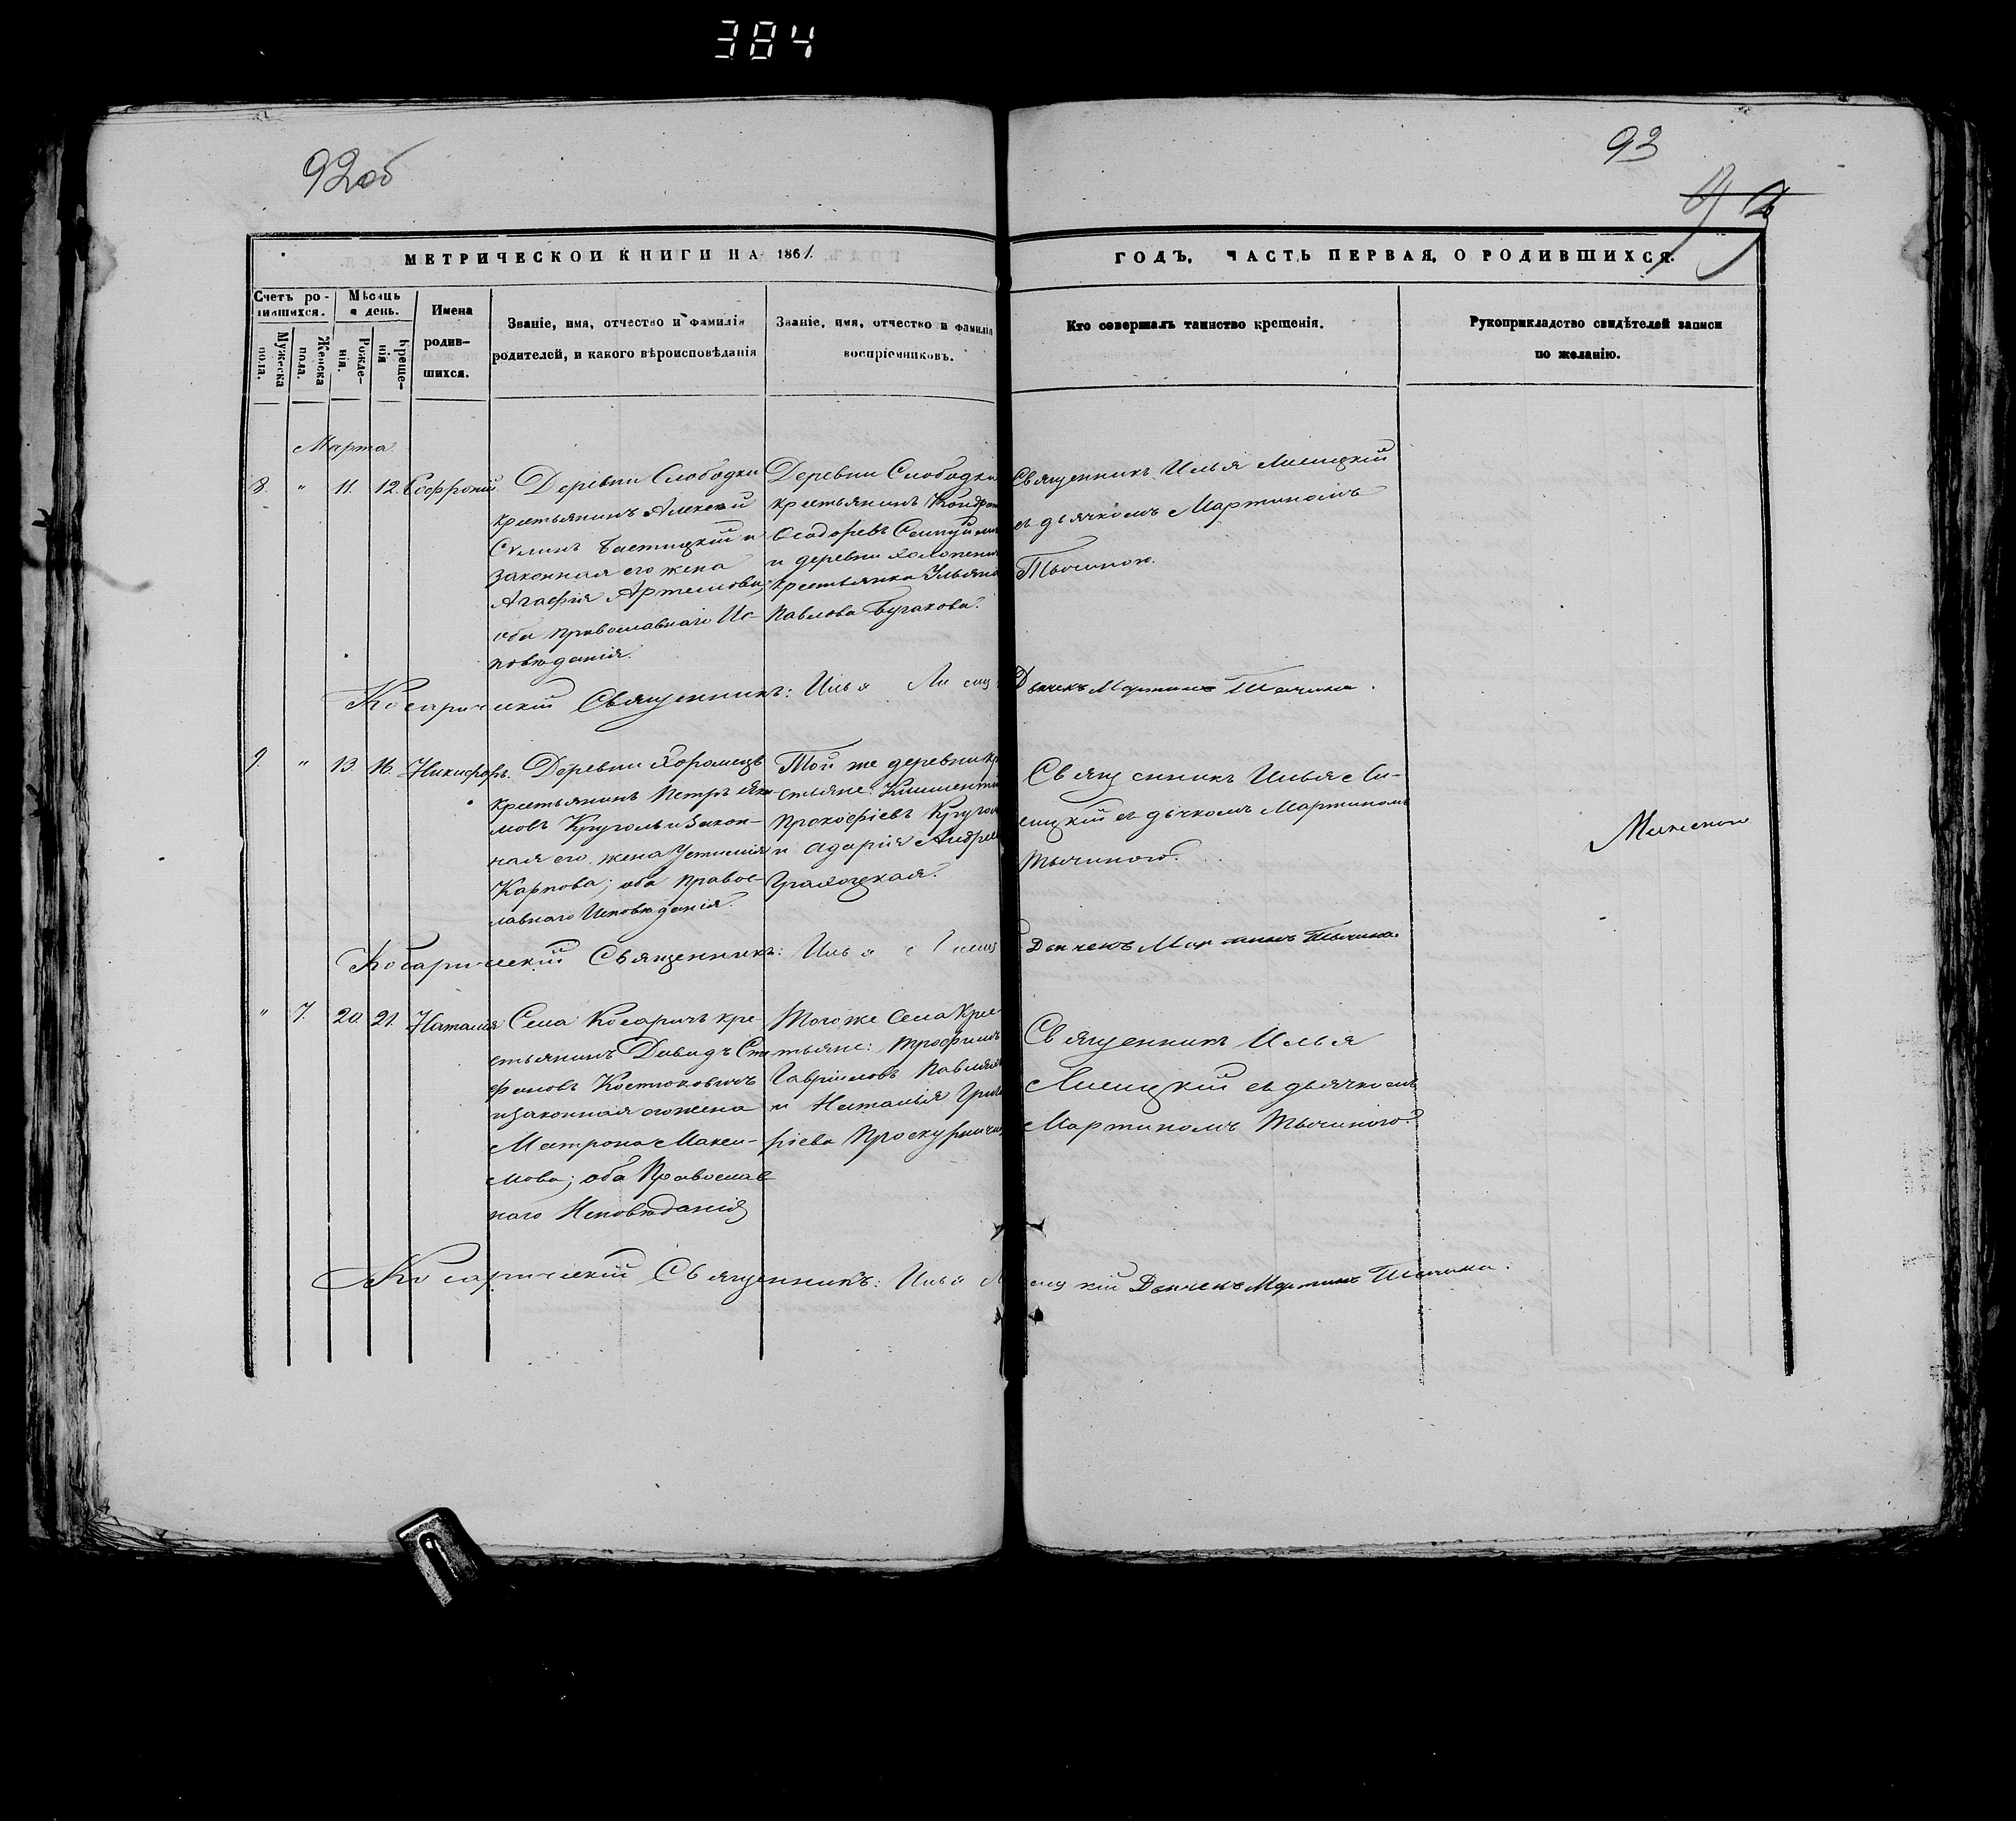 384
92об
93
МЕТРИЧЕСКОЙ КНИГИ НА 1861
ГОДЪ, ЧАСТЬ ПЕРВАЯ, О РОДИВШИХСЯ.
Счетъ родившихся.
Мѣсяць и день.
Имена родившихся.
Званіе, имя, отчество и фамилія родителей, и какого вѣроисповѣданія
Званіе, имя, отчество и фамилія воспріемниковъ.
Кто совершалъ таинство крещенія.
Рукоприкладство свидѣтелей записи по желанію.
Мужеска пола.
Женска пола.
Рожденія.
Крещенія
Марта
8. " 11. 12. Софроній.
Деревни Слободки
крестьянинъ Алексей
и
законная его жена
Агафія Артемова;
оба православнаго Ис-
поведанія.
Деревни Слободки
крестьянинъ
Феодоровъ
и деревни
крестьянка Ульяна
Павлова Бугакова.
Священникъ Илья Лисицкій
съ дьячкомъ Мартиномъ
Тычиною.
Косаричскій Священникъ: Илья
Дьячекъ Мартинъ Тычина.
9. " 13. 16. Никифоръ.
Деревни Хоромецъ
крестьянинъ Петръ Яки-
мовъ Круголь и закон-
ная его жена Устинія
Карпова; оба правос-
лавнаго Исповеданія.
Той же деревни кре
стьяне: Климентій
Прокофіевъ
и Адарія
Священникъ Илья Ли-
сицкій съ дьячкомъ Мартиномъ
Тычиною.
Косаричскій Священникъ: Илья
Дьячекъ Мартинъ Тычина.
" 7. 20. 21. Наталія
Села Косаричъ кре-
стьянинъ Давидъ Сте
фановъ Костюковичъ
и законная его жена
Матрона Макси-
мова; оба Православ
наго Исповеданія
Того же Села Крес
тьяне: Трофимъ
Гавріиловъ
и Наталья
Священникъ Илья
Лисицкій съ дьячкомъ
Мартиномъ Тычиною.
Косаричскій Священникъ: Илья Лисицкій Дьячекъ Мартинъ Тычина.